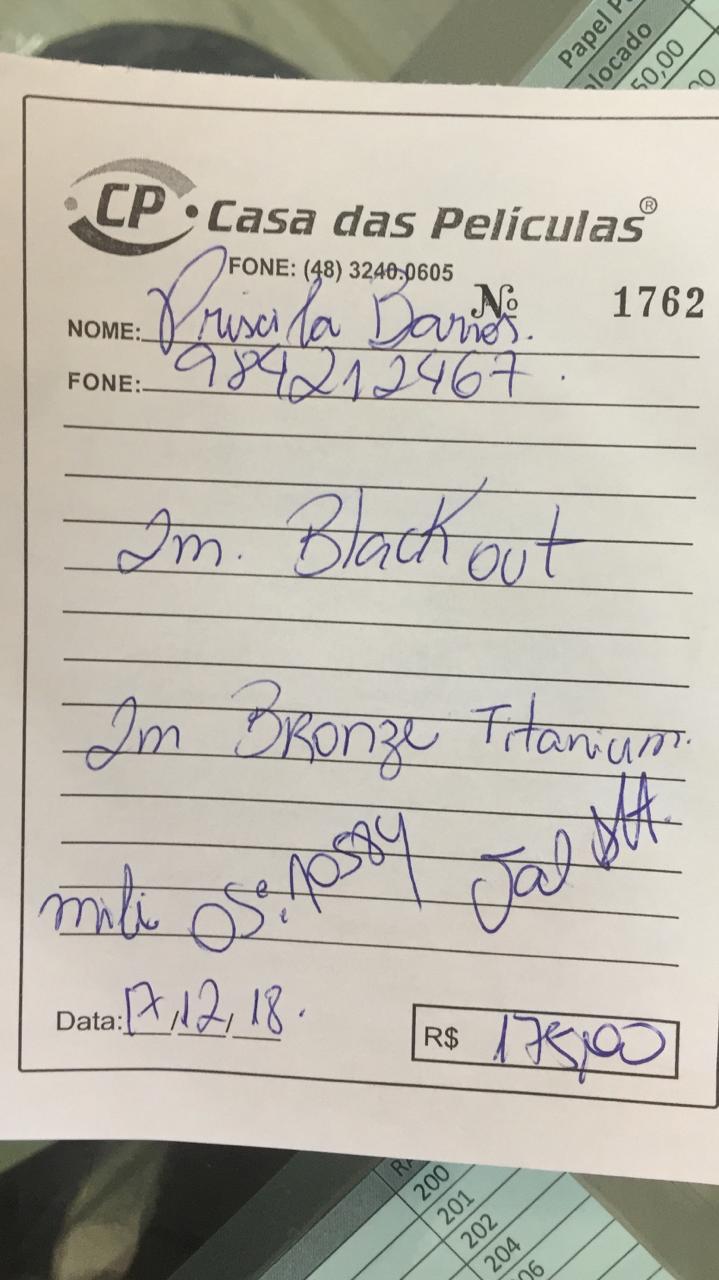 Papel P
olocado
50,00
00
CP • Casa das Películas®
FONE: (48) 3240.0605
Nº 1762
NOME: Priscila Barros.
FONE: 984212467.
2m. Blackout
2m Bronze Titanium.
mili OS: 10584 Jal
Data: 17/12/18.
R$ 175,00
200
201
202
204
06